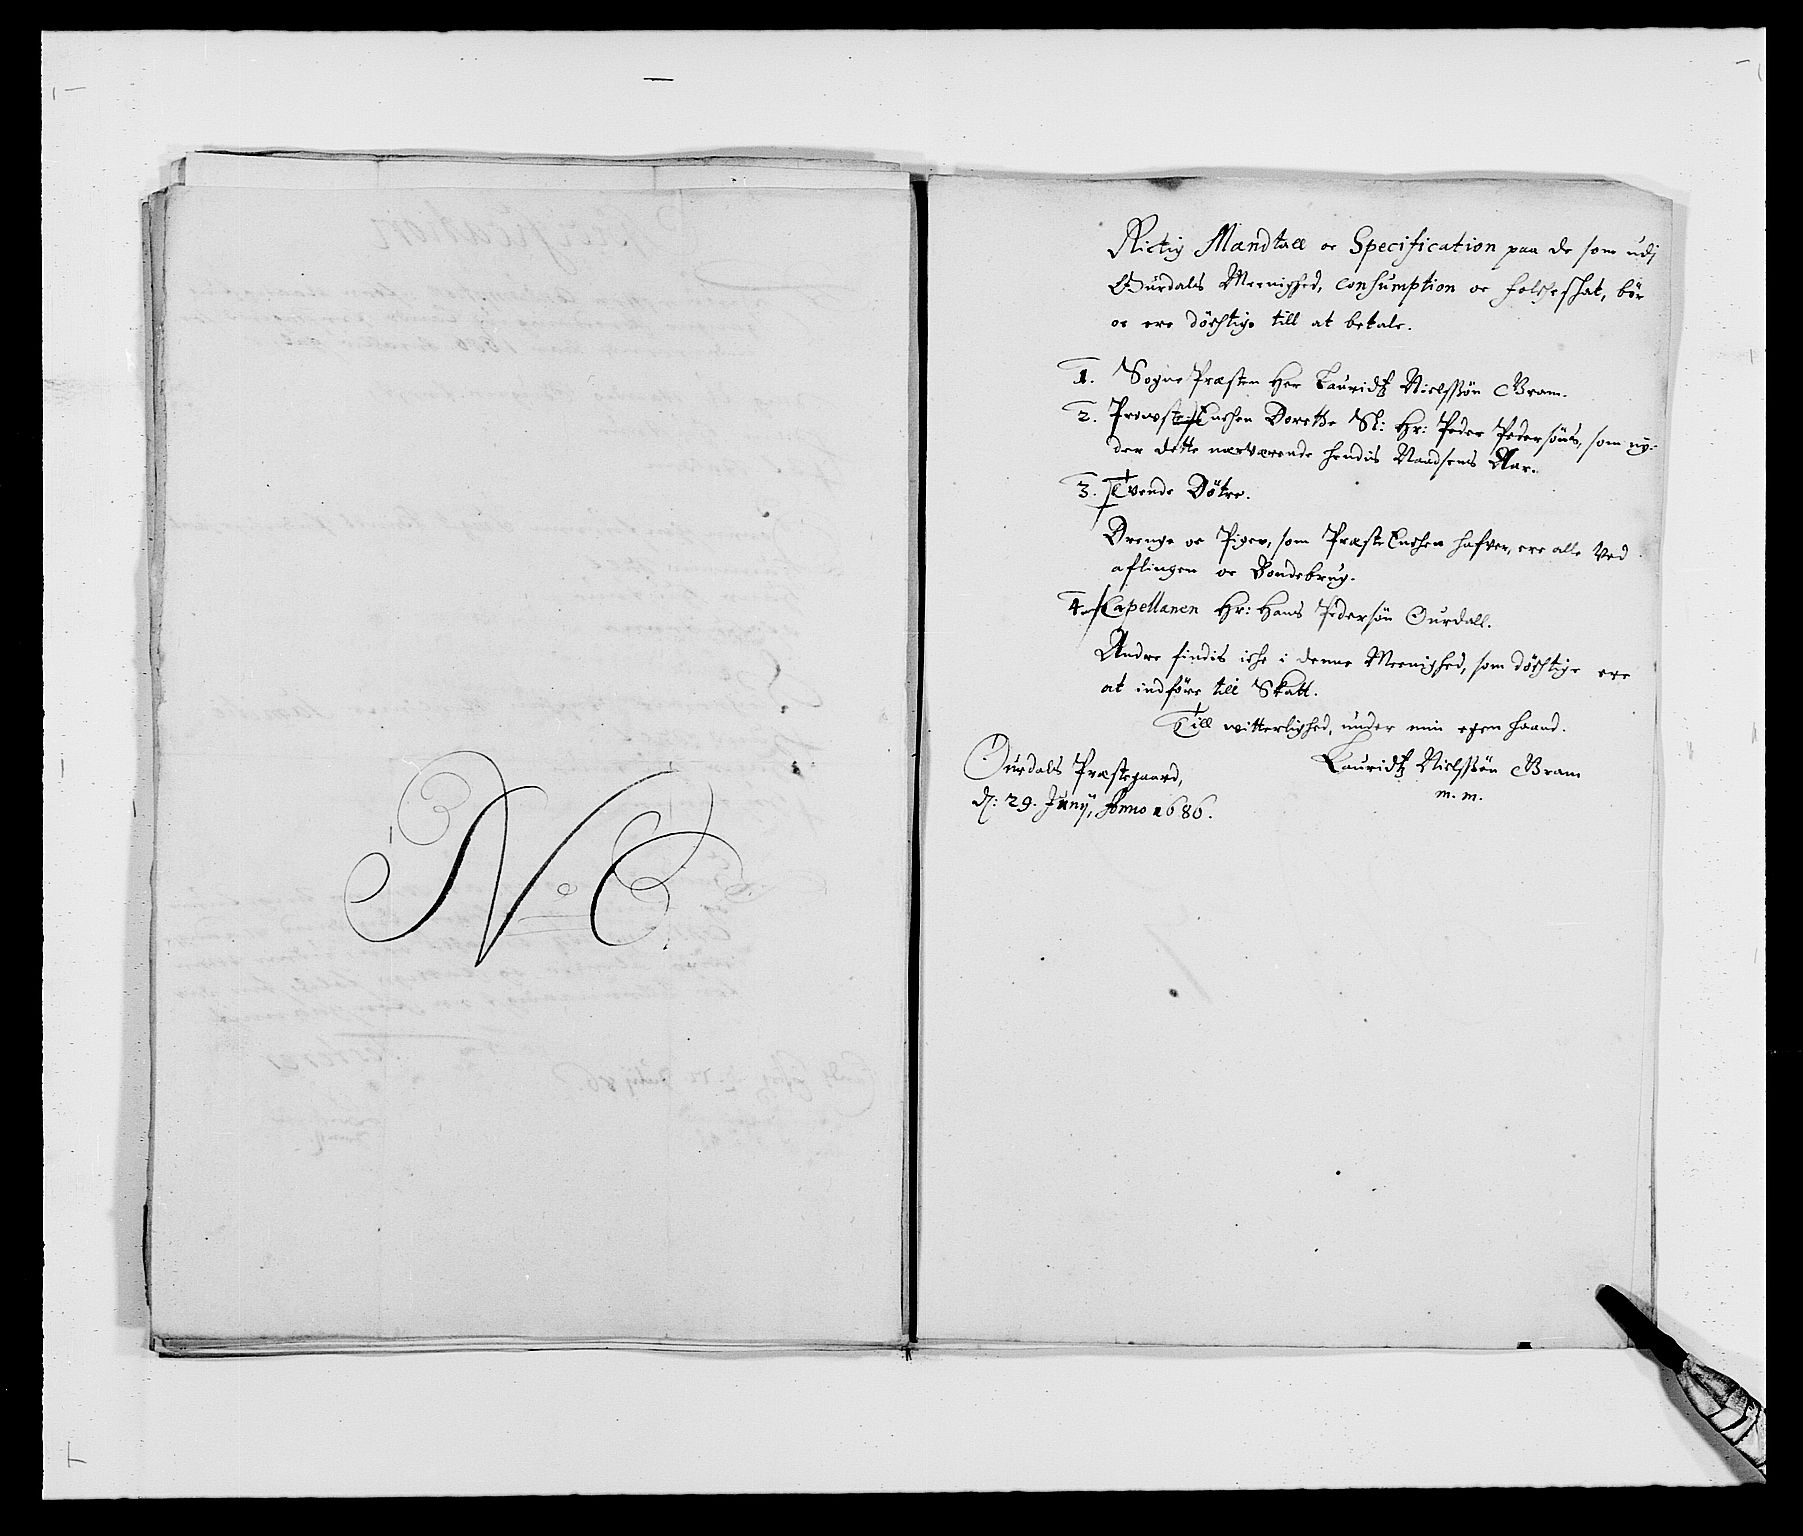 No C
Richtig Mandtall oc Specification paa de som udj
Ourdals Meenighed, Consumption oc folcheskat, bör
oc ere döchtige till at betale.
1. Sogne Præsten Her Lauridtz Nielssön Bram.
2. Prowste Enchen Dorethe Sl: Hr: Peder Pedersöns, som ny-
der dette nærværende hendis Naadsens Aar.
3. Tvende Döttre.
Drenge oc Piger, som Præste Enchen hafver, ere alle ved
aflingen oc Bondebrug.
4. Capellanen Hr: Hans Pedersön Ourdall.
Andre findis iche i denne Meenighed, som döchtige ere
at indföre till Skatt.
Till witterlighed, under min egen haand.
Ourdals Præstegaard,
d: 29. Junij, Anno 1686.
Lauridtz Nielssön Bram
m. m.